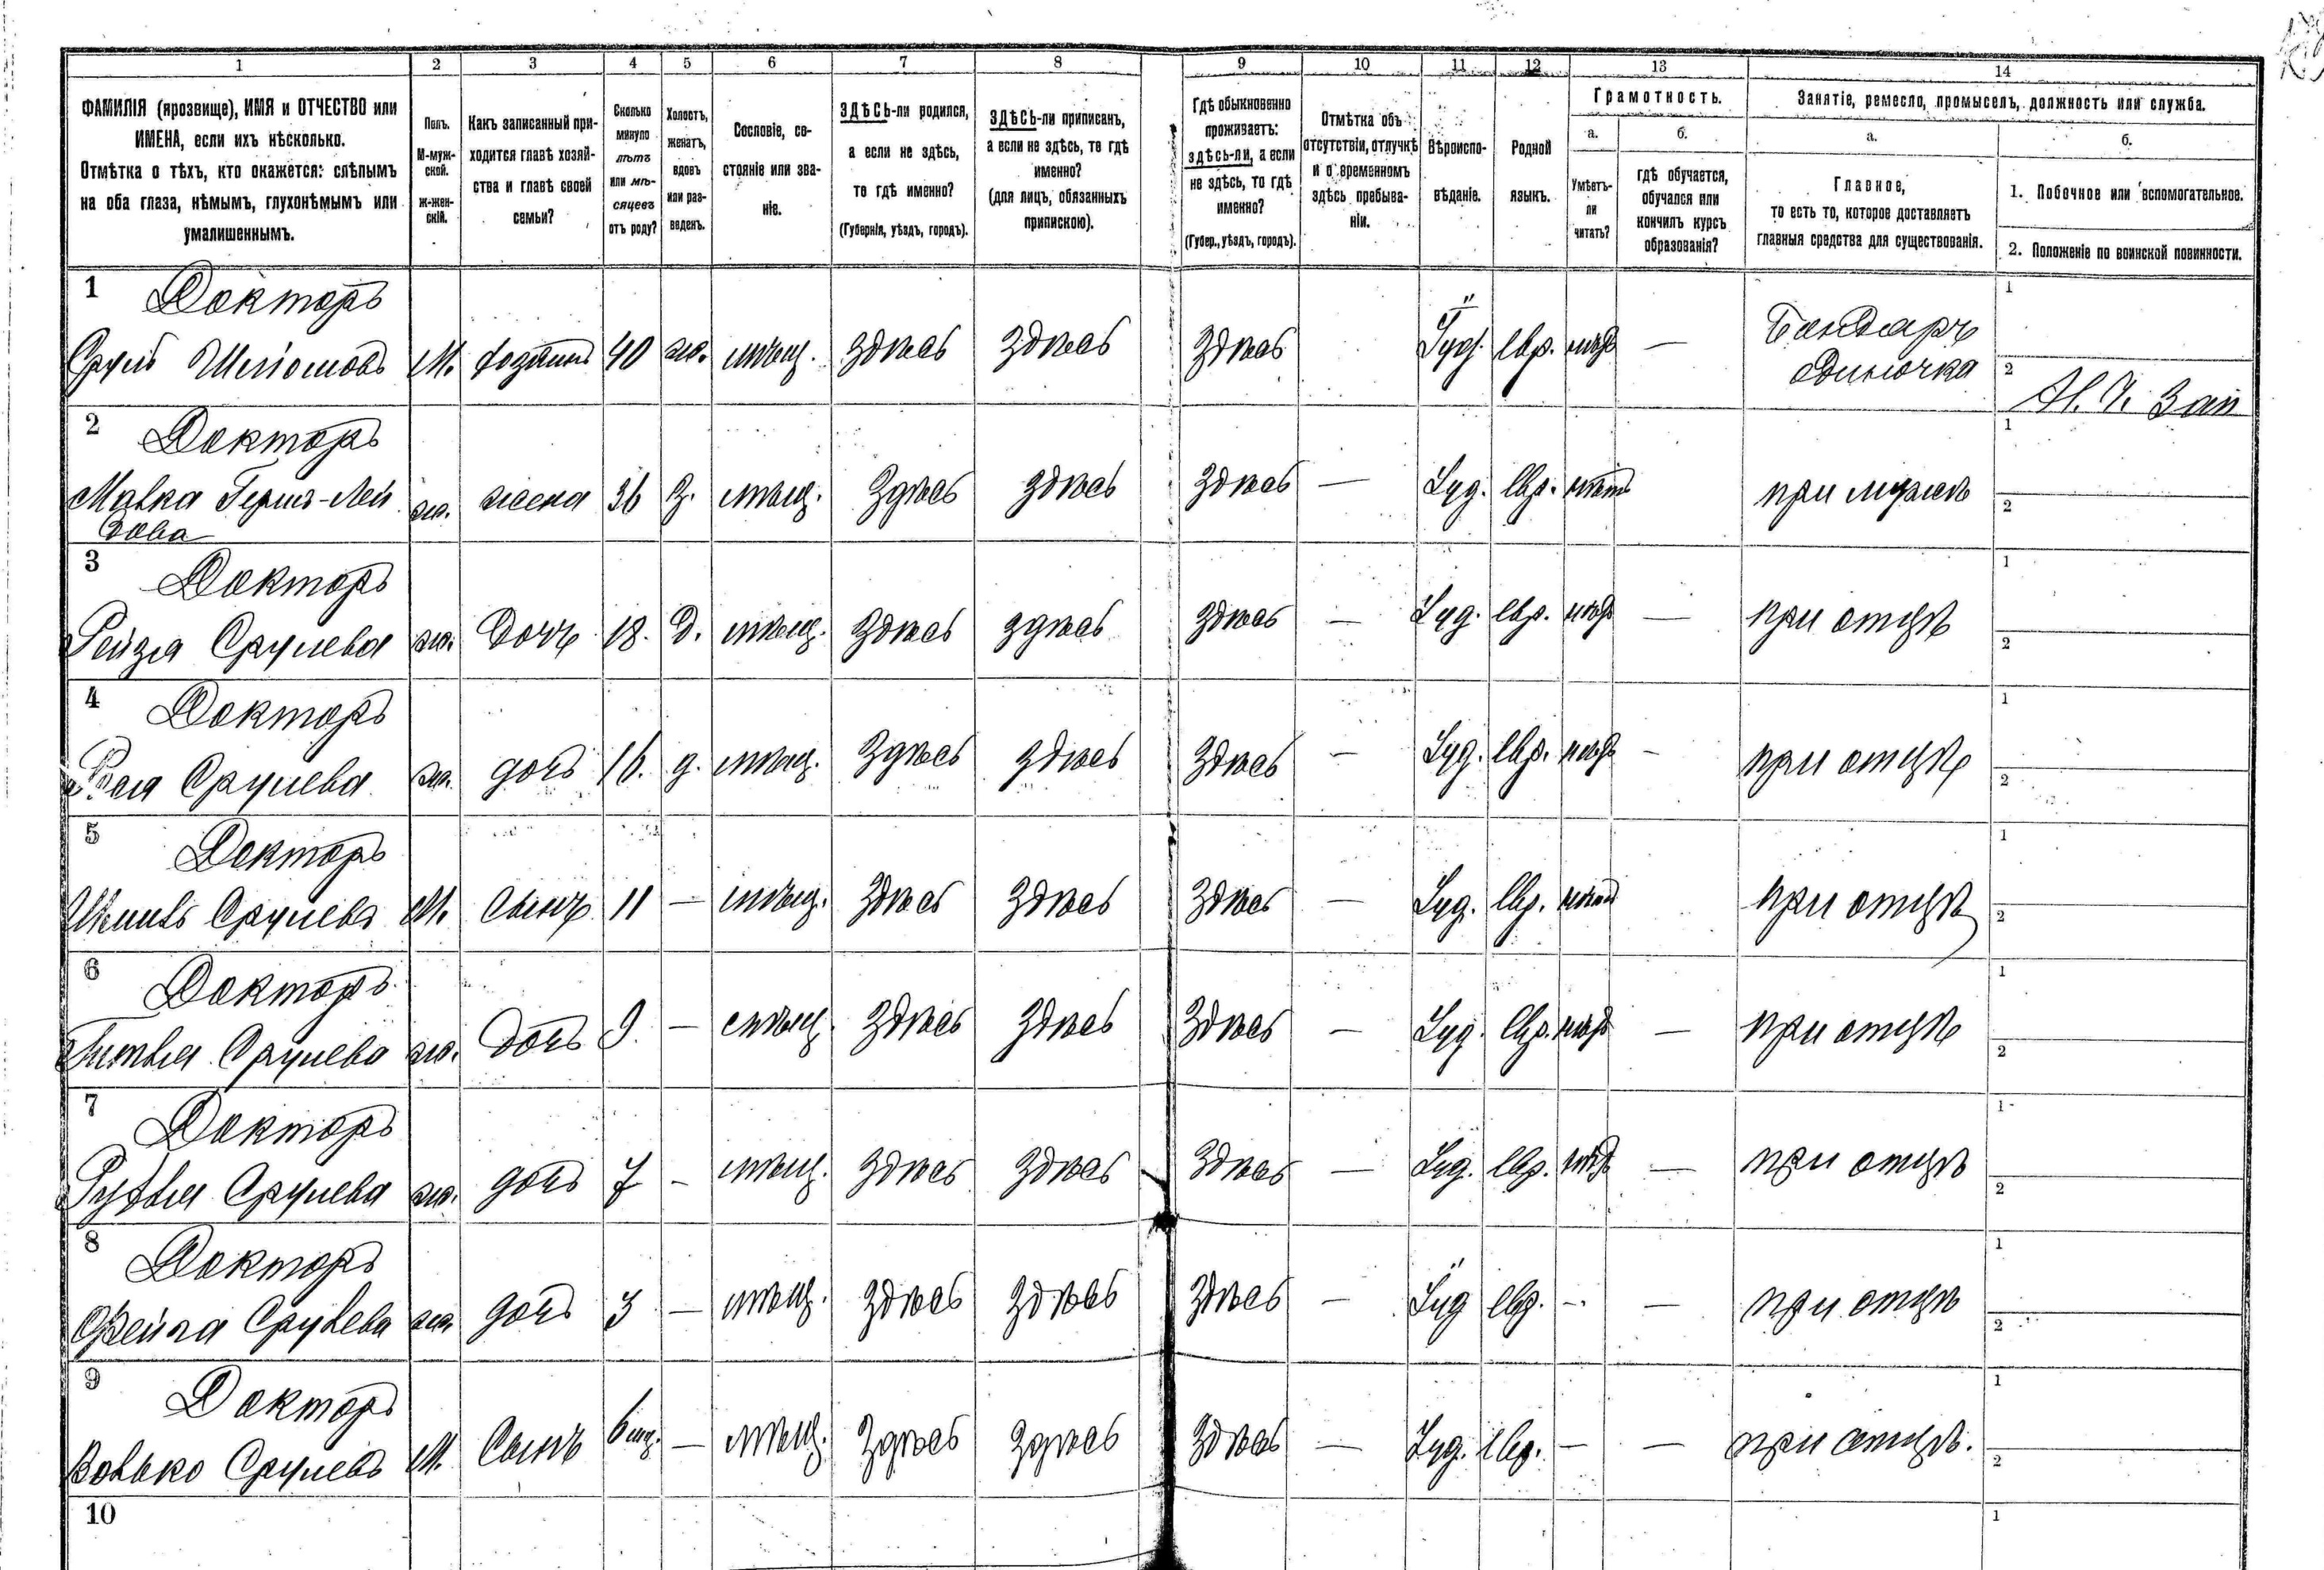 1 2 3 4 5 6 7 8 9 10 11 12 13 14
ФАМИЛІЯ (прозвище), ИМЯ и ОТЧЕСТВО или
ИМЕНА, если ихъ нѣсколько.
Отмѣтка о тѣхъ, кто окажется: слѣпымъ
на оба глаза, нѣмымъ, глухонѣмымъ или
умалишеннымъ.
Полъ.
М-муж-
ской.
ж-жен-
скій.
Какъ записанный при-
ходится главѣ хозяй-
ства и главѣ своей
семьи?
Сколько
минуло
лѣтъ
или мѣ-
сяцевъ
отъ роду?
Холостъ,
женатъ,
вдовъ
или раз-
веденъ.
Сословіе, со-
стояніе или зва-
ніе.
ЗДѢСЬ-ли родился,
а если не здѣсь,
то гдѣ именно?
(Губернія, уѣздъ, городъ).
ЗДѢСЬ-ли приписанъ,
а если не здѣсь, то гдѣ
именно?
(для лицъ, обязанныхъ
припискою).
Гдѣ обыкновенно
проживаетъ:
здѣсь-ли, а если
не здѣсь, то гдѣ
именно?
(Губер., уѣздъ, городъ).
Отмѣтка объ
отсутствіи, отлучкѣ
и о временномъ
здѣсь пребыва-
ніи.
Вѣроиспо-
вѣданіе.
Родной
языкъ.
Грамотность.
а.
Умѣетъ-
ли
читать?
б.
гдѣ обучается,
обучался или
кончилъ курсъ
образованія?
Занятіе, ремесло, промыселъ, должность или служба.
а.
Главное,
то есть то, которое доставляетъ
главныя средства для существованія.
б.
1. Побочное или вспомогательное.
2. Положеніе по воинской повинности.
1 Докторъ
Сруль Шліомовъ М. хозяинъ 40 ж. мѣщ. здѣсь здѣсь здѣсь Іуд. евр. нѣтъ — Бондарь
одиночка
1
2
2 Докторъ
Малка Герш-Лей
зова ж. жена 36 З. мѣщ. Здѣсь здѣсь здѣсь — Іуд. евр. нѣтъ при мужѣ
1
2
3 Докторъ
Рейзя Срулева ж. Дочь 18. Д. мѣщ. здѣсь здѣсь здѣсь — Іуд. евр. нѣтъ — при отцѣ
1
2
4 Докторъ
Срулева ж. дочь 16. д. мѣщ. Здѣсь здѣсь здѣсь — Іуд. евр. нѣтъ — при отцѣ
1
2
5 Докторъ
Срулевъ М. Сынъ 11 — мѣщ. здѣсь здѣсь здѣсь — Іуд. евр. нѣтъ при отцѣ
1
2
6 Докторъ
Гитля Срулева ж. дочь 9. — мѣщ. здѣсь здѣсь здѣсь — Іуд. евр. нѣтъ — при отцѣ
1
2
7 Докторъ
Рухля Срулева ж. дочь 7 — мѣщ. здѣсь здѣсь здѣсь — Іуд. евр. нѣтъ — при отцѣ
1
2
8 Докторъ
Фейга Срулева ж. дочь 3 — мѣщ. здѣсь здѣсь здѣсь — Іуд евр. — — при отцѣ
1
2
9 Докторъ
Волько Срулевъ М. Сынъ 6 мц. — мѣщ. Здѣсь здѣсь здѣсь — Іуд. евр. — — при отцѣ.
1
2
10
1